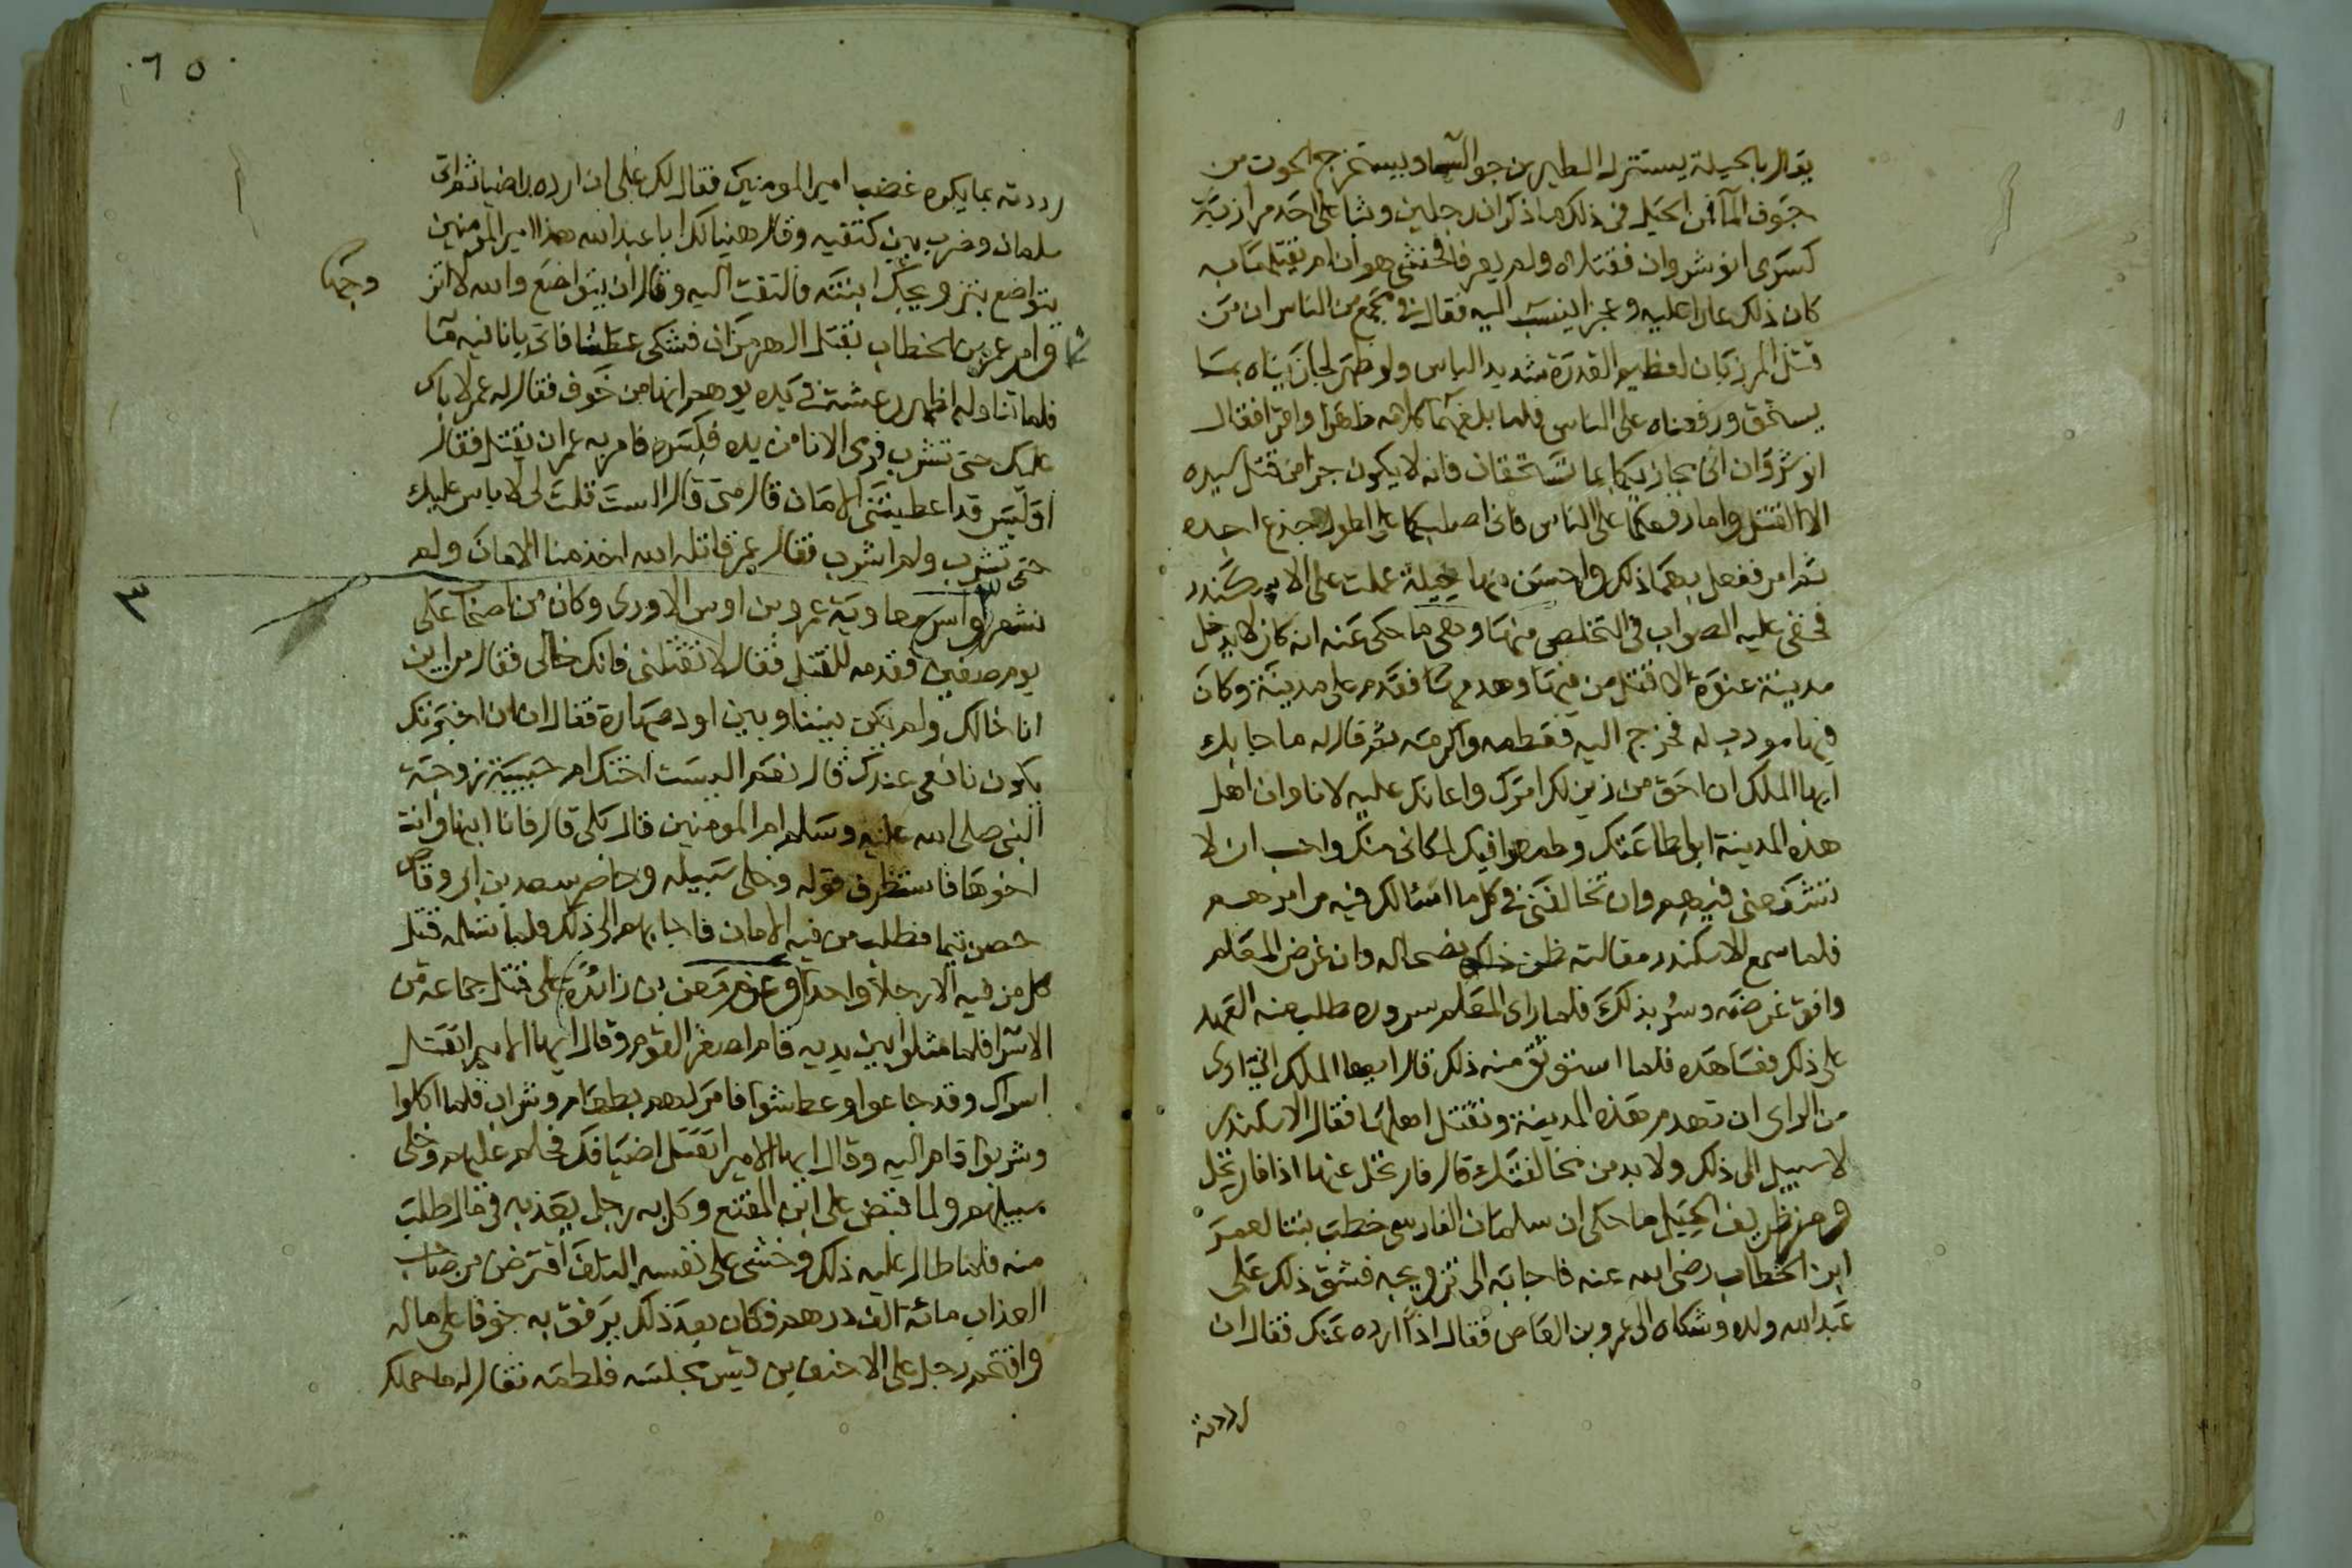 يقال بالحيلة يستنزل الطير من جو السماء ويستخرج الحوت من
جوف الماء فمن الحيل في ذلك ما ذكر ان رجلين وثبا على احد مرازبة
كسرى انوشروان فقتلاه ولم يعرفا فخشى هو ان لم يقتلهما به
كان ذلك عارا عليه وعجزا ينسب اليه فقال في مجمع من الناس ان من
قتل المرزبان لعظيم القدرة شديد الباس ولو ظهر لجازيناه بما
يستحق ورفعناه على الناس فلما بلغهما كلامه ظهرا واقرا فقال
انوشروان اني مجازيكما بما تستحقان فانه لا يكون جزا من قتل سيده
الا القتل واما رفعكما على الناس فاني اصلبكما على اطول جذع اجده
ثم امر ففعل بهما ذلك واحسن منها حيلة عملت على الاسكندر
فخفى عليه الصواب في التخلص منها وهي ما حكى عنه انه كان لا يدخل
مدينة عنوة الا قتل من فيها وهدمها فقدم على مدينة وكان
فيها مودب له فخرج اليه فعظمه واكرمه ثم قال له ما جا بك
ايها الملك ان احق من زين لك امرك واعانك عليه لانا وان اهل
هذه المدينة ابوا طاعتك وطمعوا فيك لمكاني منك واحب ان لا
تشفعني فيهم وان تخالفني في كل ما اسالك فيه من امرهم
فلما سمع الاسكندر مقالته ظن ذلك نصحا له وان غرض المعلم
وافق غرضه وسر بذلك فلما راى المعلم سروره طلب منه العهد
على ذلك فعاهده فلما استوثق منه ذلك قال ايها الملك اني ارى
من الراى ان تهدم هذه المدينة وتقتل اهلها فقال الاسكندر
لا سبيل الى ذلك ولا بد من مخالفتك قال فارتحل عنها اذا فارتحل
ومن ظريف الحيل ما حكى ان سلمان الفارسي خطب بنتا لعمر
ابن الخطاب رضى الله عنه فاجابه الى تزويجه فشق ذلك على
عبد الله ولده وشكاه الى عمرو بن العاص فقال اذاً ارده عنك فقال ان
رددته
٦٥
رددته بما يكره غضب امير المومنين فقال لك على ان ارده راضيا ثم اتى
سلمان وضرب بين كتفيه وقال هنيا لك ابا عبد الله هذا امير المومنين
يتواضع بتزويجك ابنته فالتفت اليه وقال ان يتواضع والله لا اتز
وجها
وامر عمر بن الخطاب بقتل الهرمزان فشكى عطشا فاتى بانا فيه ما
فلما تناوله اظهر رعشة في يده يوهم انها من خوف فقال له عمر لا باس
عليك حتى تشرب فرمى الانا من يده فكسره فامر به عمر ان يقتل فقال
اوليس قد اعطيتني الامان قال متى قال الست قلت لي لا باس عليك
حتى تشرب ولم اشرب فقال عمر قاتله الله اخذ منا الامان ولم
نشعر واسر معاوية عمرو بن اوس الاودي وكان من اصحاب على
٣
يوم صفين فقدمه للقتل فقال لا تقتلني فانك خالى فقال من اين
انا خالك ولم يكن بيننا وبين اود صهارة فقال ان اخبرتك
يكون نافعي عندك قال نعم اليست اختك ام حبيبة زوجة
النبي صلى الله عليه وسلم ام المومنين قال بلى قال فانا ابنها وانت
اخوها فاستظرف قوله وخلى سبيله وحاصر سعد بن ابي وقاص
حصن تيما فطلب من فيه الامان فاجابهم الى ذلك ولما تسلمه قتل
كل من فيه الا رجلا واحدا وعزم معن بن زائدة على قتل جماعة من
الاسرا فلما مثلوا بين يديه قام اصغر القوم وقال ايها الامير اتقتل
اسراك وقد جاعوا وعطشوا فامر لهم بطعام وشراب فلما اكلوا
وشربوا قام اليه وقال ايها الامير اتقتل اضيافك فحلم عليهم وخلى
سبيلهم ولما قبض على ابن المقفع وكل به رجل يعذبه في مال طلب
منه فلما طال عليه ذلك وخشى على نفسه التلف اقترض من صاحب
العذاب مائة الف درهم فكان بعد ذلك يرفق به خوفا على ماله
واقتحم رجل على الاحنف بن قيس مجلسه فلطمه فقال له ما حملك